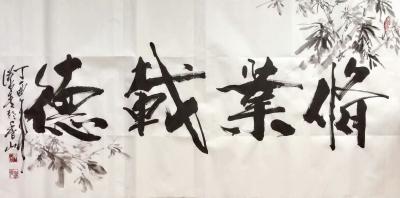 脩業載德
丁酉
於香山